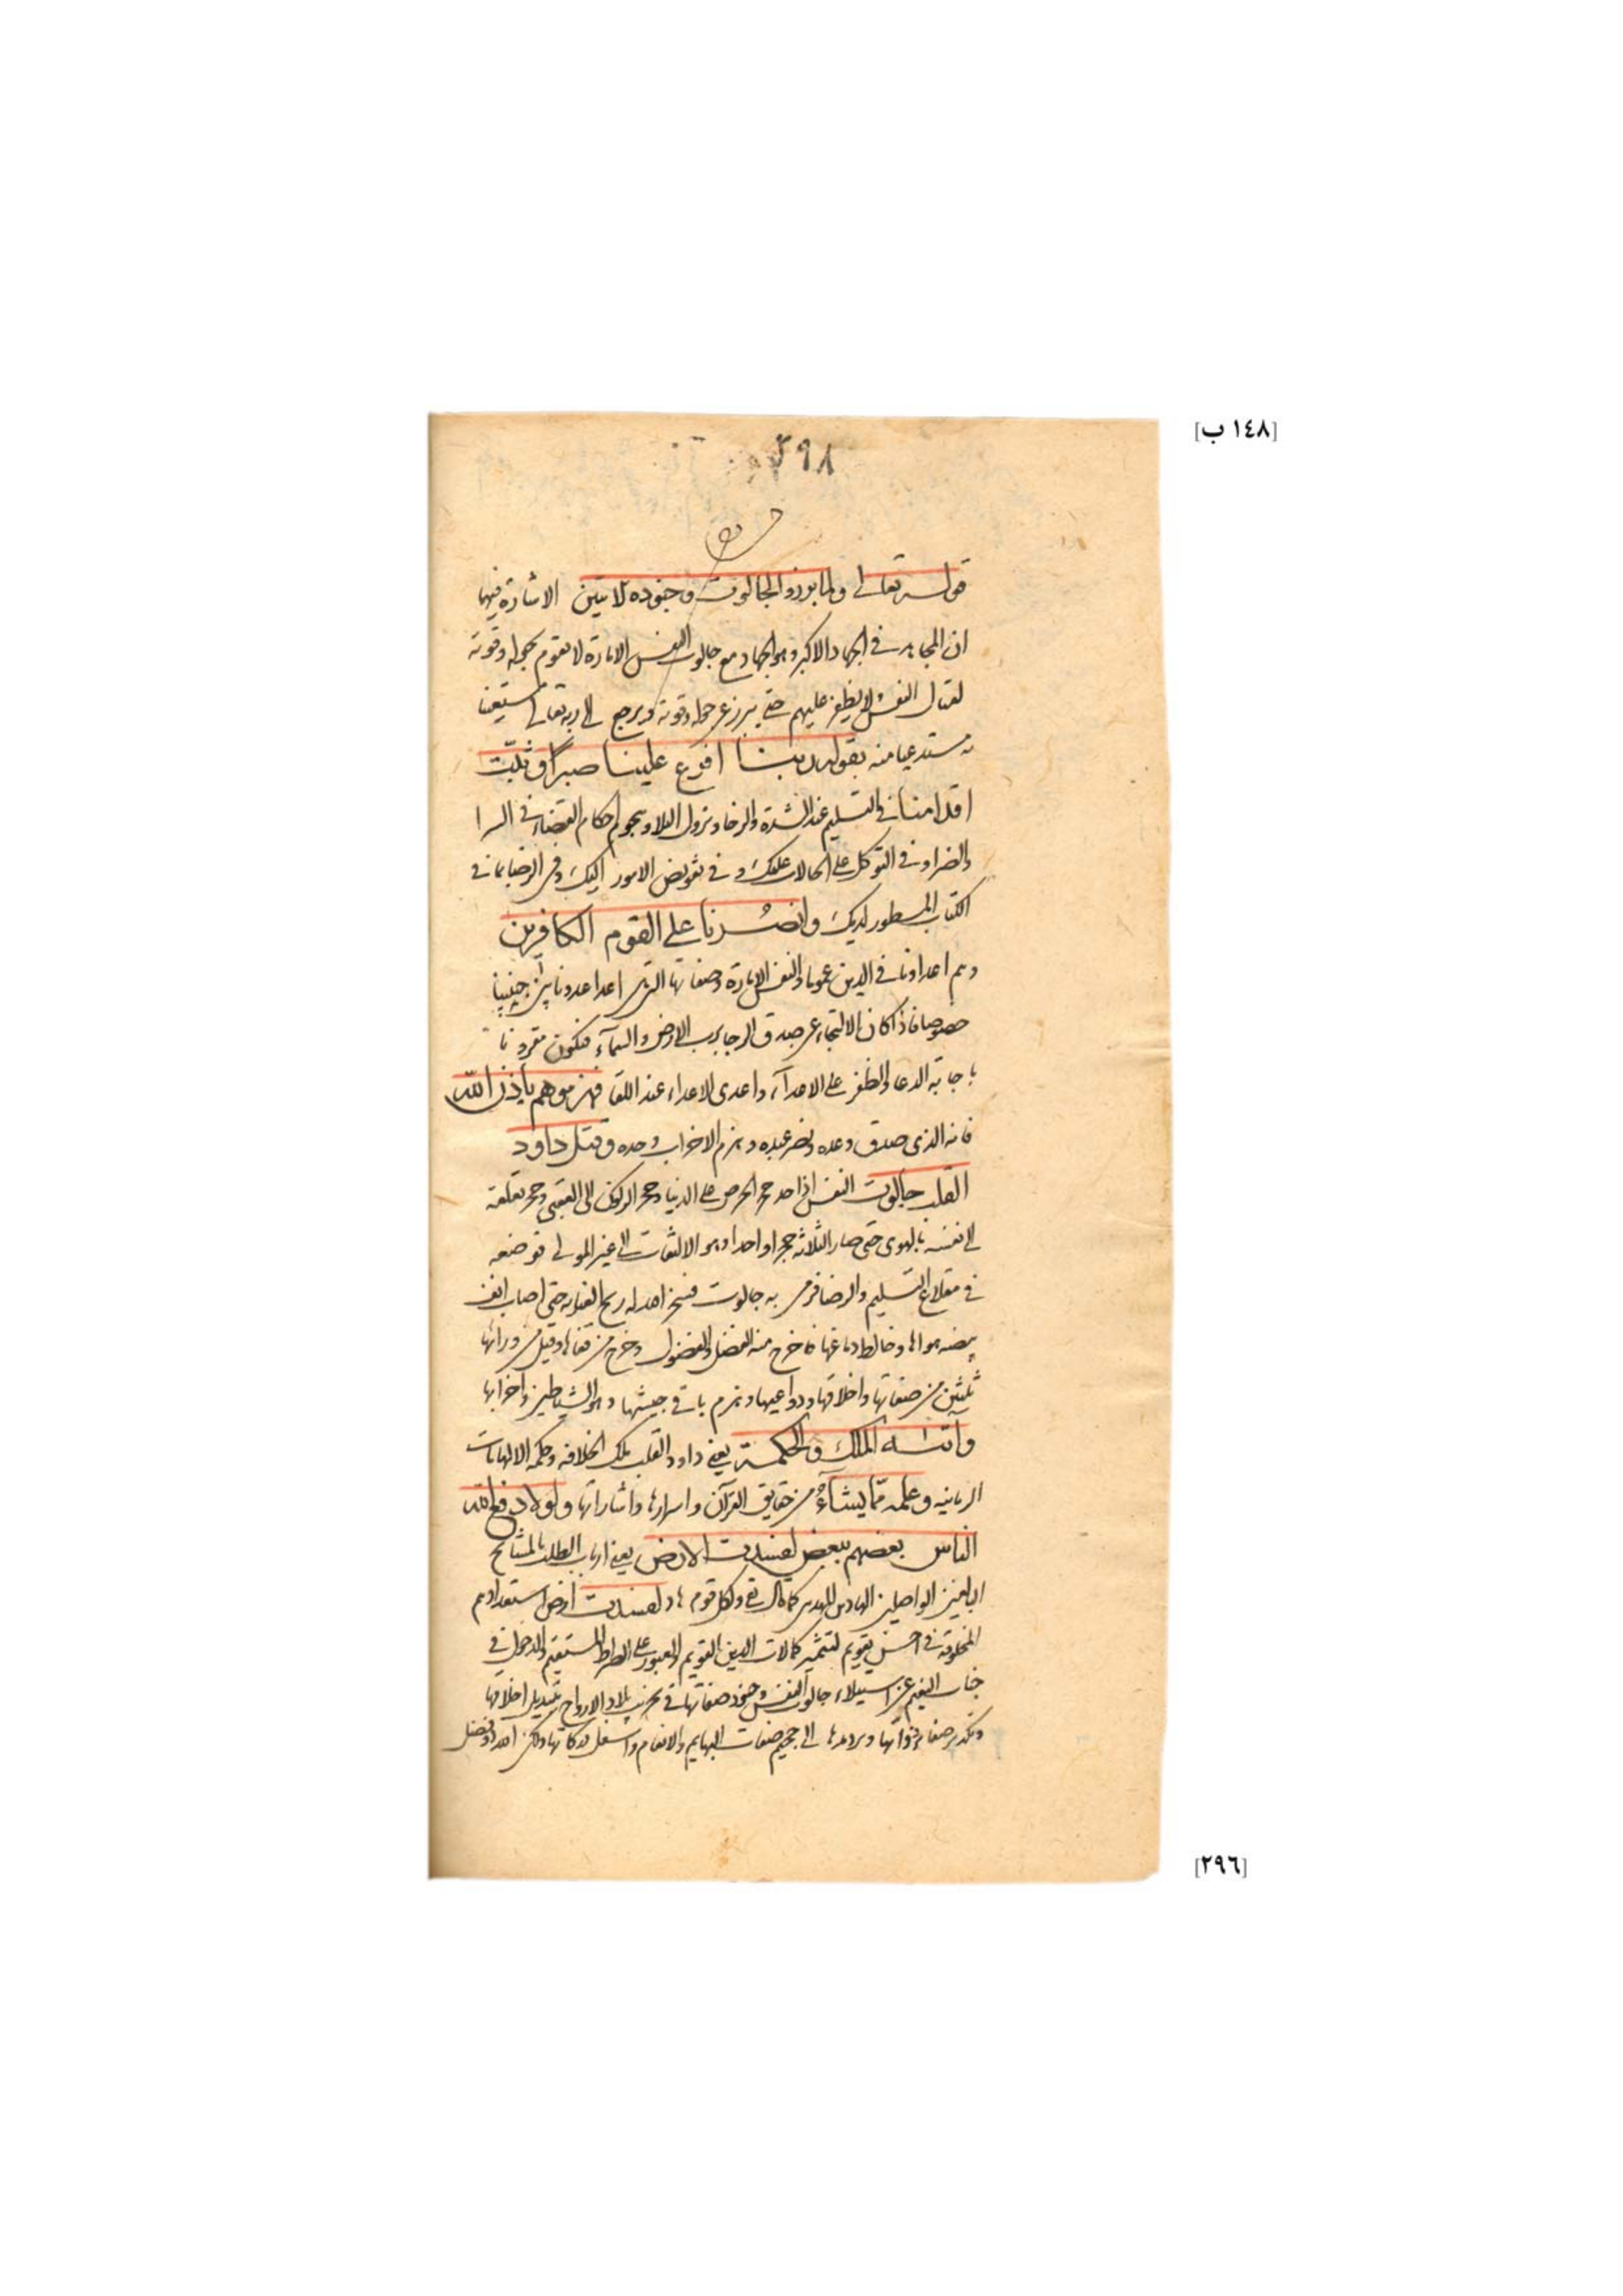 [١٤٨ ب]
٢٩٨
قوله تعالى ولما برزوا لجالوت وجنوده الآيتين الاشارة فيها
ان المجاهد في الجهاد الاكبر وهو الجهاد مع جالوت النفس الامارة لا يقوم بحوله وقوته
لقتال النفس ولا يظفر عليهم حتى يبرز عن حوله وقوته ويرجع الى ربه تعالى مستعينا
به مستدعيا منه بقوله ربنا افرغ علينا صبرا وثبّت
اقدامنا في التسليم عند الشدة والرخا ونزول البلا وهجوم احكام القضاء في السرا
والضرا وفي التوكل على الحالات عليك وفي تفويض الامور اليك وفي الرضا بما في
الكتاب المسطور لديك وانصُرنا على القوم الكافرين
وهم اعداونا في الدين عموما والنفس الامارة وصفاتها التي هي اعدا عدونا بين جنبينا
خصوصا فاذا كان الالتجاء عن صدق الرجا برب الارض والسمآء فيكون مقرونا
باجابة الدعا والظفر على الاعدآء واعدى الاعداء عند اللقا فهزموهم باذن الله
فانه الذي صدق وعده ونصر عبده وهزم الاحزاب وحده وقتل داود
القلب جالوت النفس اذا اخذ حجر الحرص على الدنيا وحجر الركون الى العقبى وحجر تعلقه
الى نفسه بالهوى حتى صار الثلاثة حجرا واحدا وهو الالتفات الى غير المولى فوضعه
في مقلاع التسليم والرضا فرمى به جالوت فسخر الله له ريح العناية حتى اصاب انف
بيضه هواها وخالط دماغها فاخرج منه الفضل والفضول وخرج من قفاها وقتل من ورائها
ثلثين من صفاتها واخلاقها ودواعيها وهزم باقي جيشها وهو الشياطين واحزابها
واتٰىه الله الملك والحكمة يعني داود القلب ملك الخلافه وحكمة الالهامات
الربانيه وعلمه ممّا يشآءُ من حقايق القرآن واسرارها واشاراتها ولولا دفع الله
الناس بعضهم ببعض لفسدت الارض يعني ارباب الطلب بالمشايخ
البالغين الواصلين الهادين المهديين كما قال تعالى ولكل قوم هاد لفسدت ارض استعدادهم
المخلوقة في احسن تقويم لتثمير كمالات الدين القويم والعبور على الصراط المستقيم والدخول في
جنات النعيم عن استيلاء جالوت النفس وجنود صفاتها في تخريب بلاد الارواح بتبديل اخلاقها
وتكدير صفاء ذواتها وردها الى جحيم صفات البهايم والانعام واسفل دركاتها ولكن الله ذو فضل
[٢٩٦]